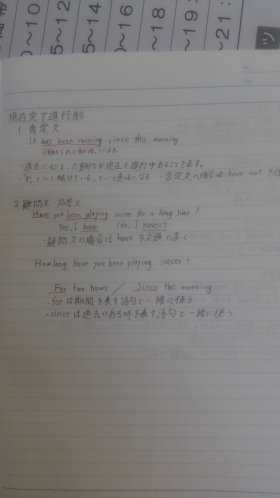 0~10
5~12
0~14
~16
~18
~19:
~21:
ツ
現在完了進行形
1 肯定文
It has been raining since this morning
・過去に始まった動作が現在も進行中であることを表す。
・「ずっと~し続けている」という意味になる ・否定文の場合は have not を
2 疑問文 応答文
Have you been playing soccer for a long time?
Yes, I have No, I haven't
・疑問文の場合は have を文頭に置く
How long have you been playing soccer?
For two hours / Since this morning
・for は期間を表す語句と一緒に使う
・since は過去のある時を表す語句と一緒に使う